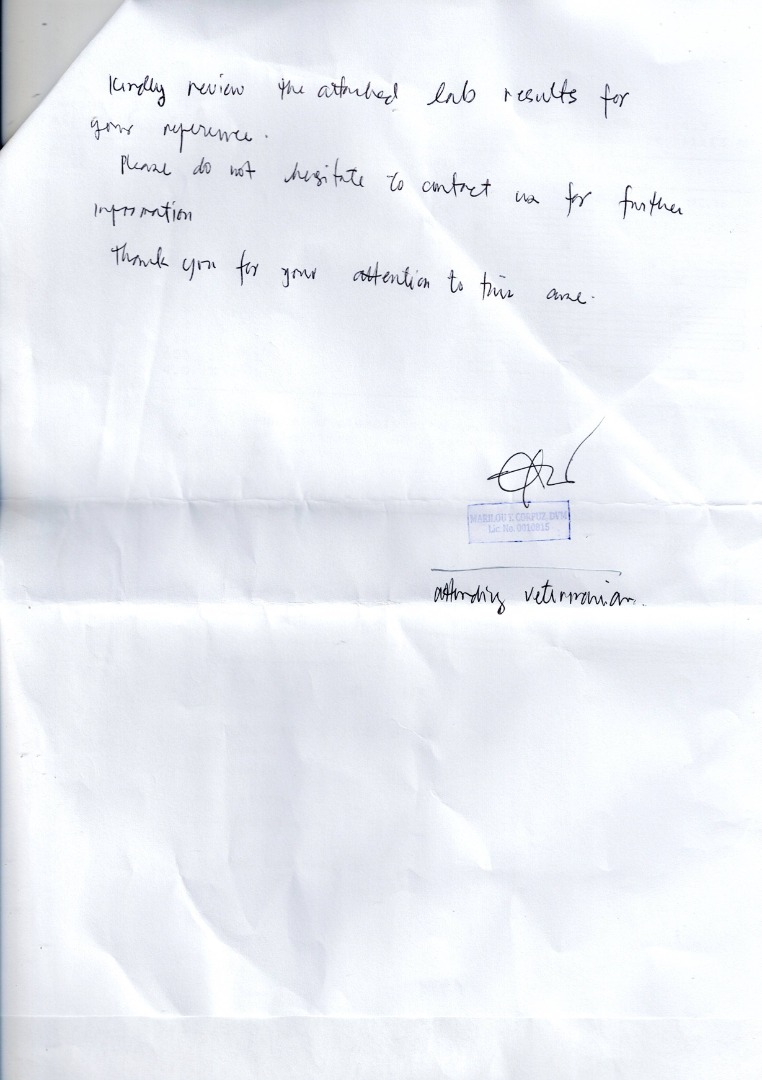 Kindly review the attached lab results for
your reference.
Please do not hesitate to contact us for further
information
Thank you for your attention to this case.
MARILOU F. CORPUZ, DVM
Lic. No. 0010815
attending veterinarian.